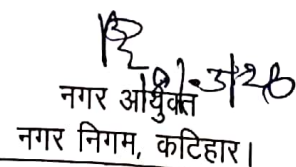 नगर आयुक्त
नगर निगम, कटिहार।